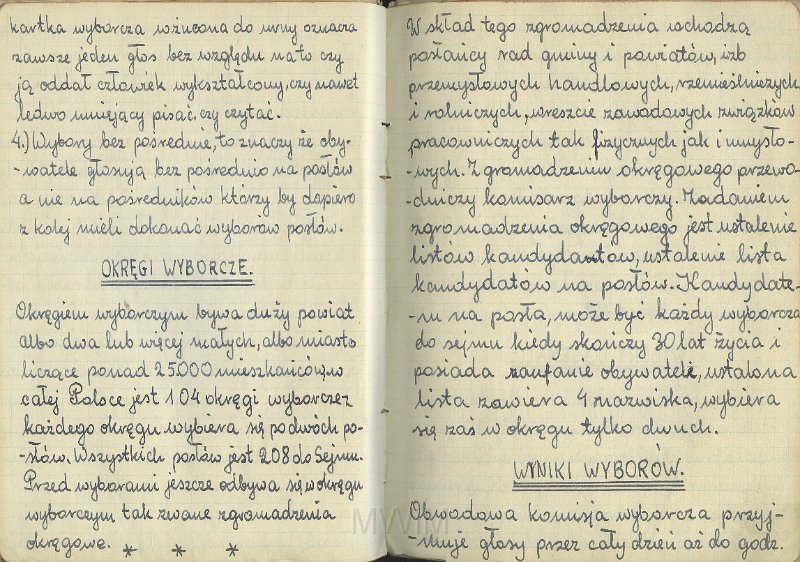 kartka wyborcza wrzucona do urny oznacza
zawsze jeden głos bez względu na to czy
ją oddał człowiek wykształcony, czy nawet
ledwo umiejący pisać, czy czytać.
4.) Wybory bez pośrednie, to znaczy że oby-
-watele głosują bez pośrednio na posłów
a nie na pośredników którzy by dopiero
z kolej mieli dokonać wyborów posłów.
OKRĘGI WYBORCZE.
Okręgiem wyborczym bywa duży powiat
albo dwa lub więcej małych, albo miasto
liczące ponad 25.000 mieszkańców, w
całej Polsce jest 104 okręgi wyborcze z
każdego okręgu wybiera się po dwóch po-
-słów. Wszystkich posłów jest 208 do Sejmu.
Przed wyborami jeszcze odbywa się w okręgu
wyborczym tak zwane zgromadzenia
okręgowe. * * *
W skład tego zgromadzenia wchodzą
posłańcy rad gminy i powiatów, izb
przemysłowych handlowych, rzemieślniczych
i rolniczych, wreszcie zawodowych związków
pracowniczych tak fizycznych jak i umysło-
-wych. Zgromadzeniu okręgowego przewo-
-dniczy komisarz wyborczy. Zadaniem
zgromadzenia okręgowego jest ustalenie
listów kandydantów, ustalenie lista
kandydatów na posłów. Kandydate-
-m na posła, może być każdy wyborca
do sejmu kiedy skończy 30 lat życia i
posiada zaufanie obywateli, ustalona
lista zawiera 4 nazwiska, wybiera
się zaś w okręgu tylko dwuch.
WYNIKI WYBORÓW.
Obwodowa komisja wyborcza przyj-
-muje głosy przez cały dzień aż do godz.
MWiM